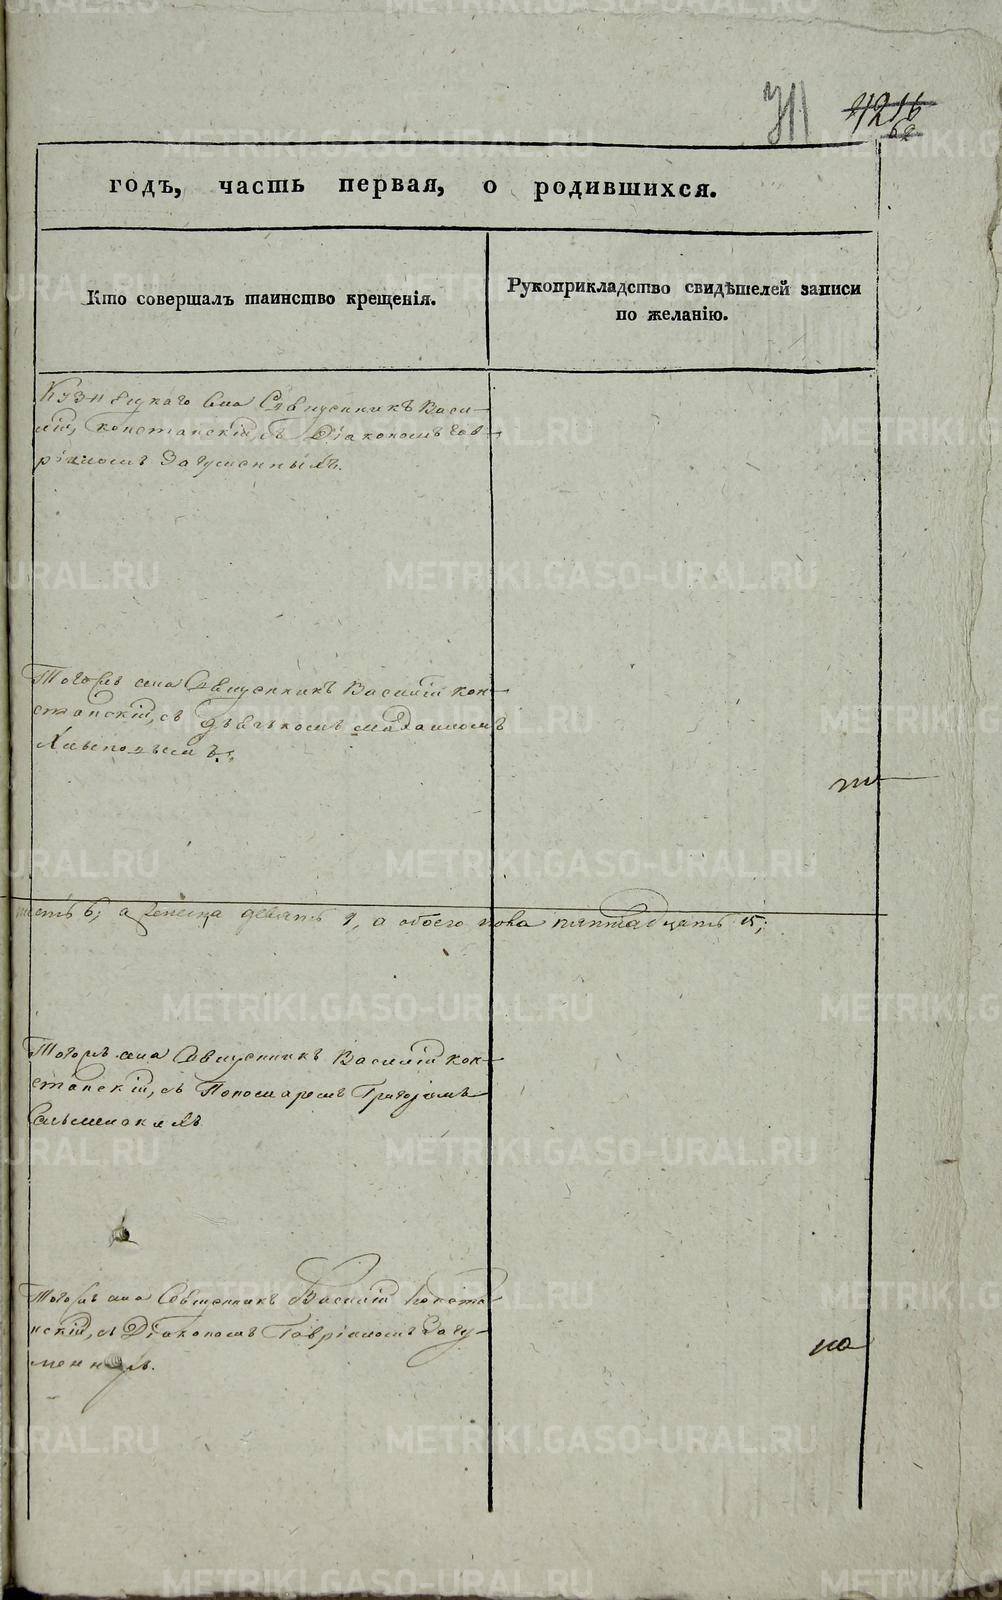 311 1216
62
годъ, часть первая, о родившихся.
Кто совершалъ таинство крещенія.
Рукоприкладство свидѣтелей записи
по желанію.
Кузнецкаго села Священникъ Васи-
лій, Констанскій, съ Діакономъ Гав-
ріиломъ Загуменныхъ.
Тогожъ села Священникъ Василій Кон-
станскій, съ дьячкомъ Михаиломъ
шесть 6; а женска девять 9, а обоего пола пятнадцать 15;
Тогожъ села Священникъ Василій Кон-
станскій, съ Пономаремъ Григоріемъ
Тогожъ села Священникъ Василій Конста
нскій, съ Діакономъ Гавріиломъ Загу-
менныхъ.
METRIKI.GASO-URAL.RU